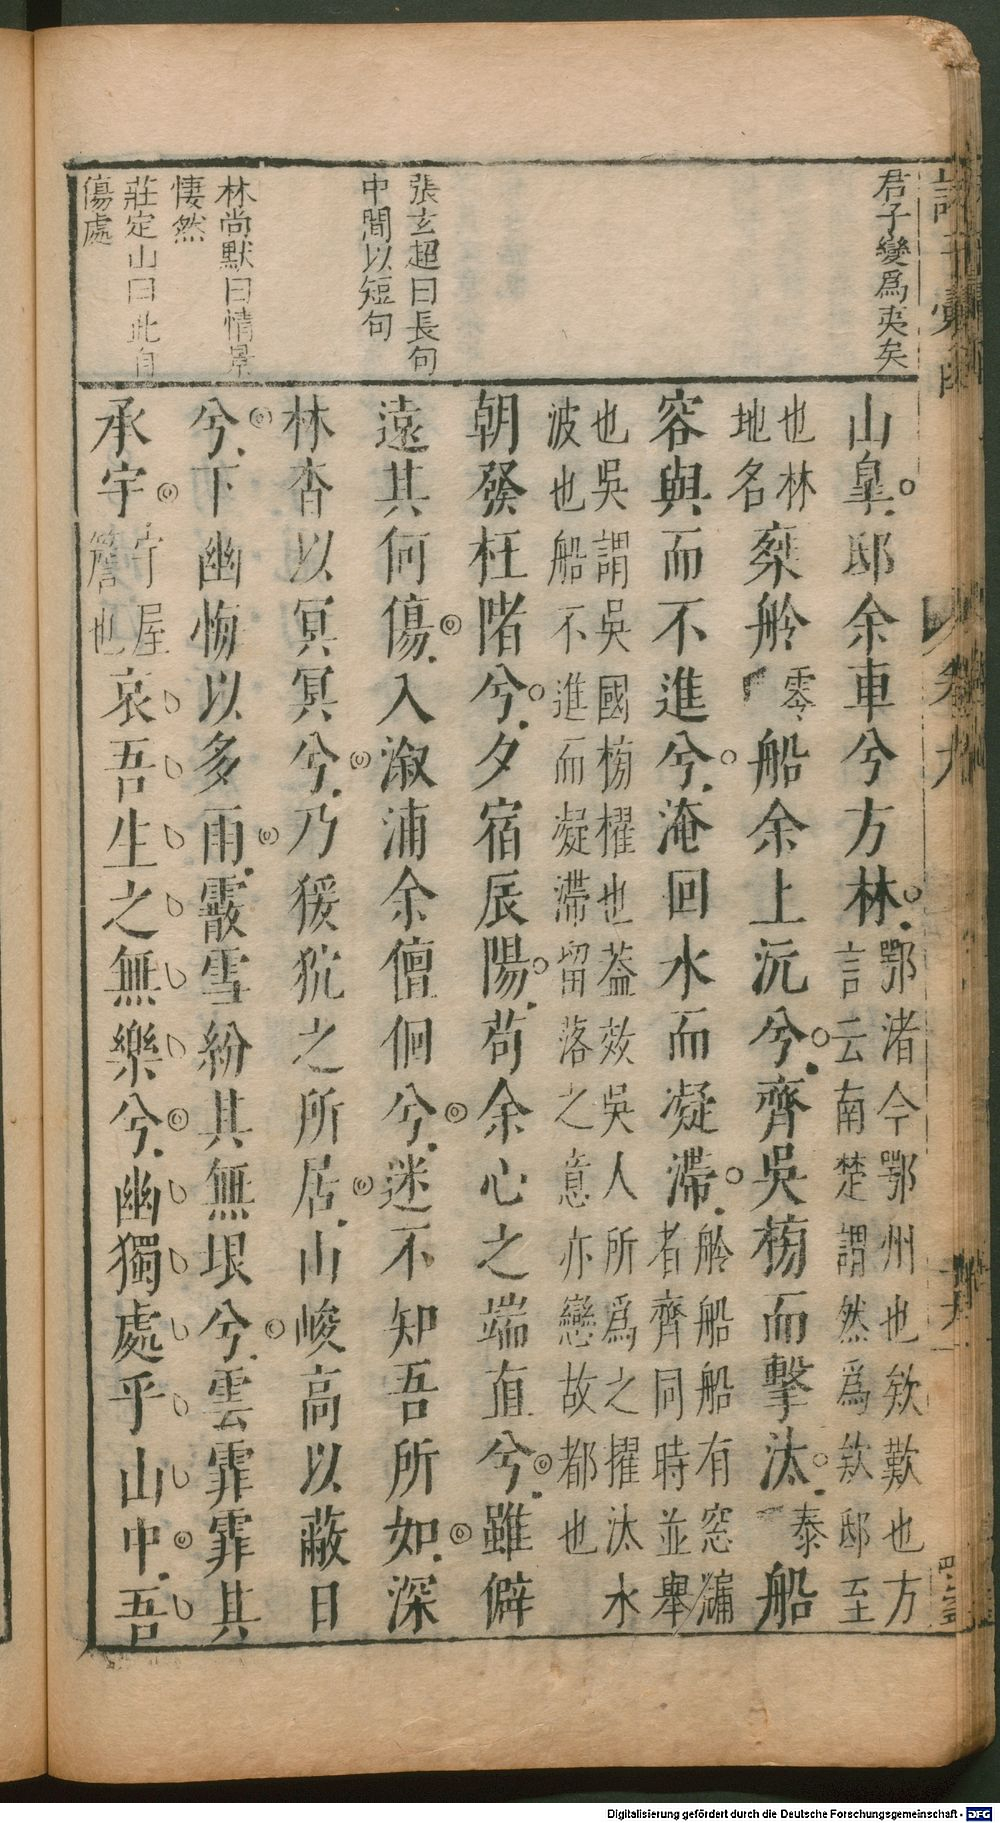 君子變爲夷矣
張玄超曰長句
中間以短句
林尚默曰情景
悽然
莊定山曰此自
傷處
山皐邸余車兮方林鄂渚今鄂州也欸歎也方
言云南楚謂然爲欸邸至
也林
地名桒舲零船余上沅兮齊吳榜而擊汰泰船
容與而不進兮淹回水而凝滯舲船船有窓牖
者齊同時並舉
也吳謂吳國榜櫂也葢效吳人所爲之擢汰水
波也船不進而凝滯留落之意亦戀故都也
朝發枉陼兮夕宿辰陽苟余心之端直兮雖僻
遠其何傷入溆浦余儃佪兮迷不知吾所如深
林杳以冥冥兮乃猨狖之所居山峻高以蔽日
兮下幽悔以多雨霰雪紛其無垠兮雲霏霏其
承宇宇屋
簷也哀吾生之無樂兮幽獨處乎山中吾
Digitalisierung gefördert durch die Deutsche Forschungsgemeinschaft - DFG